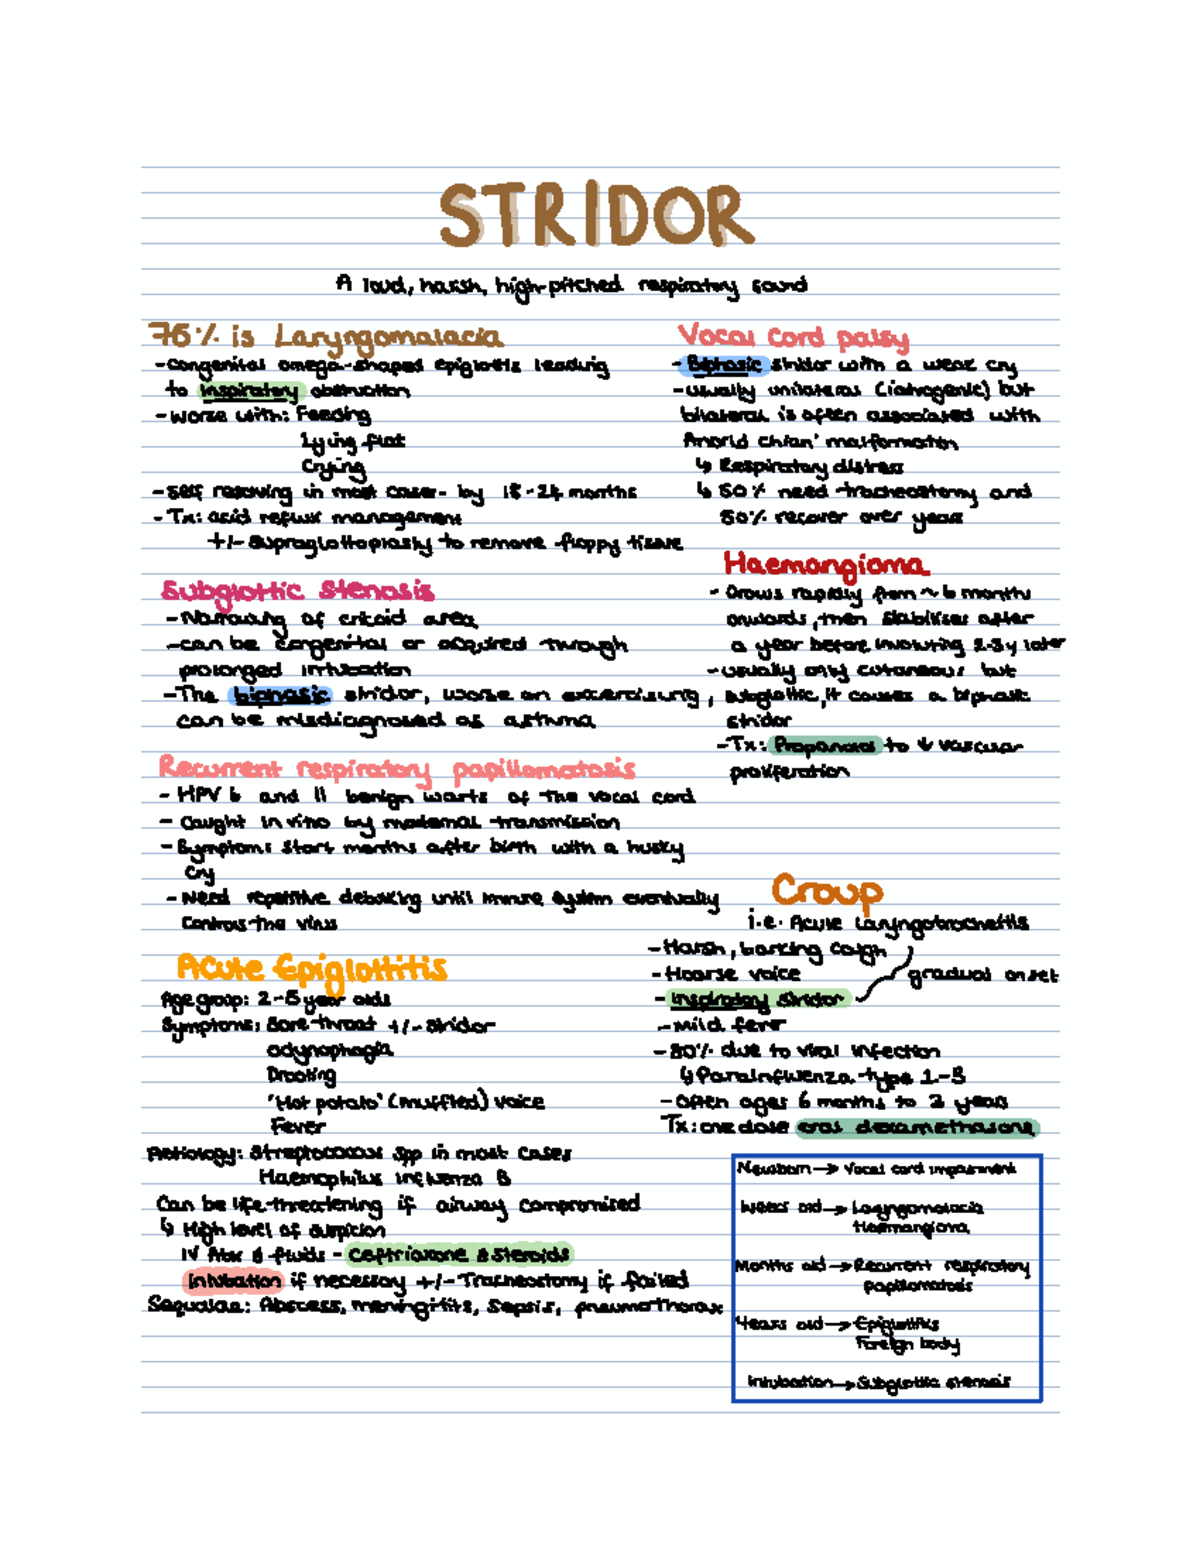 STRIDOR
A loud, harsh, high-pitched respiratory sound
75% is Laryngomalacia
- Congenital omega-shaped epiglottis leading
to inspiratory obstruction
- Worse with: Feeding
Lying flat
Crying
- Self resolving in most cases- by 18-24 months
- Tx: acid reflux management
+/- Supraglottoplasty to remove floppy tissue
Subglottic Stenosis
- Narrowing of cricoid area
- can be congenital or acquired through
prolonged intubation
- The biphasic stridor, worse on excercisung,
can be misdiagnosed as asthma
Recurrent respiratory papillomatosis
- HPV 6 and 11 benign warts of the vocal cord
- Caught in vitro by maternal transmission
- Symptoms start months after birth with a husky
Cry
- Need repetitive debulking until immune system eventually
Controls the virus
Acute Epiglottitis
Age group: 2-5 year olds
Symptoms: Sore throat +/- Stridor
odynophagia
Drooling
'Hot potato' (muffled) voice
Fever
Aetiology: Streptococcus Spp in most cases
Haemophilus influenza B
Can be life-threatening if airway compromised
↳ High level of suspicion
IV Abx & fluids - Ceftriaxone & Steroids
Intubation if necessary +/- Tracheostomy if failed
Sequalae: Abscess, meningitits, Sepsis, pneumothorax
Vocal Cord palsy
- Biphasic stridor with a weak cry
- usually unilateral (iatrogenic) but
bilateral is often associated with
Arnorld Chiari malformation
↳ Respiratory distress
↳ 50% need tracheostomy and
50% recover over years
Haemangioma
- Grows rapidly from ~6 months
onwards, then stabilises after
a year before involuting 2-3y later
- usually only cutaneous but
subglottic, it causes a biphasic
stridor
- Tx: Propanolol to ↓ vascular
proliferation
Croup
i.e. Acute Laryngotracheitis
- Harsh, barking cough
- Hoarse voice
gradual onset
- Inspiratory stridor
- Mild fever
- 80% due to viral infection
↳ Parainfluenza type 1-3
- Often ages 6 months to 3 years
Tx: one dose oral dexamethasone
Newborn → Vocal cord impairment
Weeks old → Laryngomalacia
Haemangioma
Months old → Recurrent respiratory
papillomatosis
Years old → Epiglottitis
Foreign body
Intubation → Subglottic stenosis